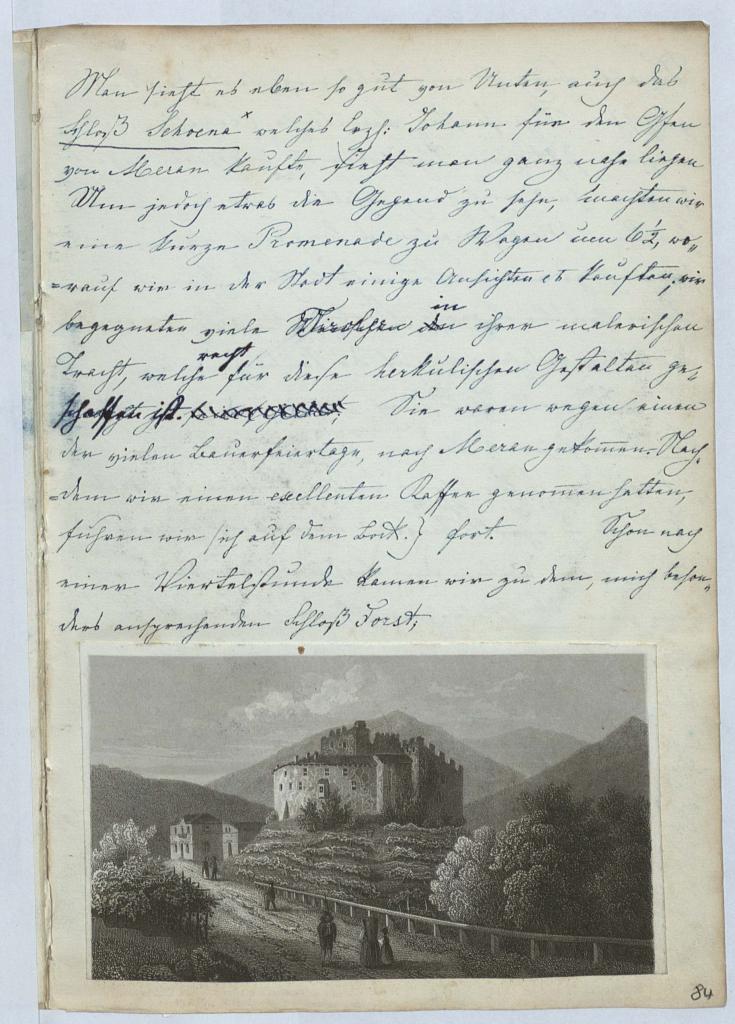 Man sieht es eben so gut von Unten, auch das
Schloß Schoena x welches Erzh: Johann für den Gfen
von Meran kaufte, sieht man ganz nahe liegen
Um jedoch etwas die Gegend zu sehn, machten wir
eine kurze Promenade zu Wagen um 6½, wo=
=rauf wir in der Stadt einige Ansichten et kauften; wir
begegneten viele in ihrer malerischen
Tracht, welche recht für diese herkulischen Gestalten ge=
schaffen ist. Sie waren wegen einen
der vielen Bauerfeiertage, nach Meran gekommen. Nach=
=dem wir einen excellenten Kaffee genommen hatten,
fuhren wir (ich auf dem Bock.) fort. Schon nach
einer Viertelstunde kamen wir zu dem, mich beson=
ders ansprechenden Schloß Forst;
84